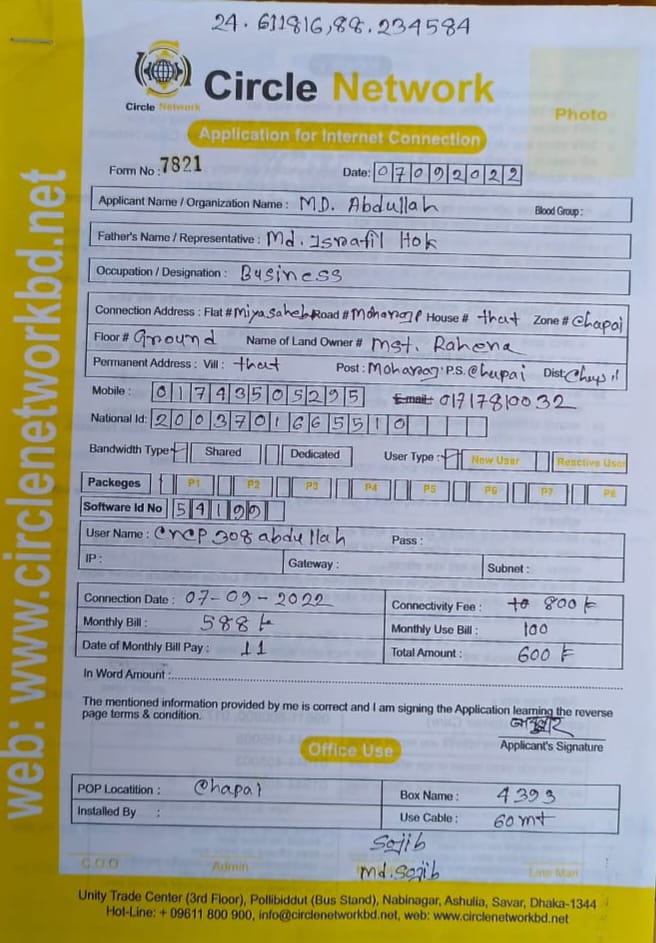 24.611816,88.234584
Circle Network
Circle Network
Photo
Application for Internet Connection
Form No : 7821
Date: 07092022
Applicant Name / Organization Name : MD. Abdullah Blood Group :
Father's Name / Representative : Md. Israfil Hok
Occupation / Designation : Business
Connection Address : Flat # Miyasaheb Road # House # that Zone # Chapai
Floor # Ground Name of Land Owner # Mst. Rahena
Permanent Address : Vill : that Post : P.S. Chapai Dist:
Mobile : 01743505295 Email: 01717810032
National Id: 2003701665510
Bandwidth Type Shared Dedicated User Type : New User Reactive User
Packeges P1 P2 P3 P4 P5 P6 P7 P8
Software Id No 54199
User Name : cncp308abdullah Pass :
IP : Gateway : Subnet :
Connection Date : 07-09-2022 Connectivity Fee : 800 t
Monthly Bill : 588 t Monthly Use Bill : 100
Date of Monthly Bill Pay : 11 Total Amount : 600 t
In Word Amount :
The mentioned information provided by me is correct and I am signing the Application learning the reverse
page terms & condition.
Applicant's Signature
Office Use
POP Locatition : Chapai Box Name : 4393
Installed By : Use Cable : 60 mt
Sojib
Md. Sojib
C.O.O Admin Line Man
Unity Trade Center (3rd Floor), Pollibiddut (Bus Stand), Nabinagar, Ashulia, Savar, Dhaka-1344
Hot-Line: + 09611 800 900, info@circlenetworkbd.net, web: www.circlenetworkbd.net
web: www.circlenetworkbd.net